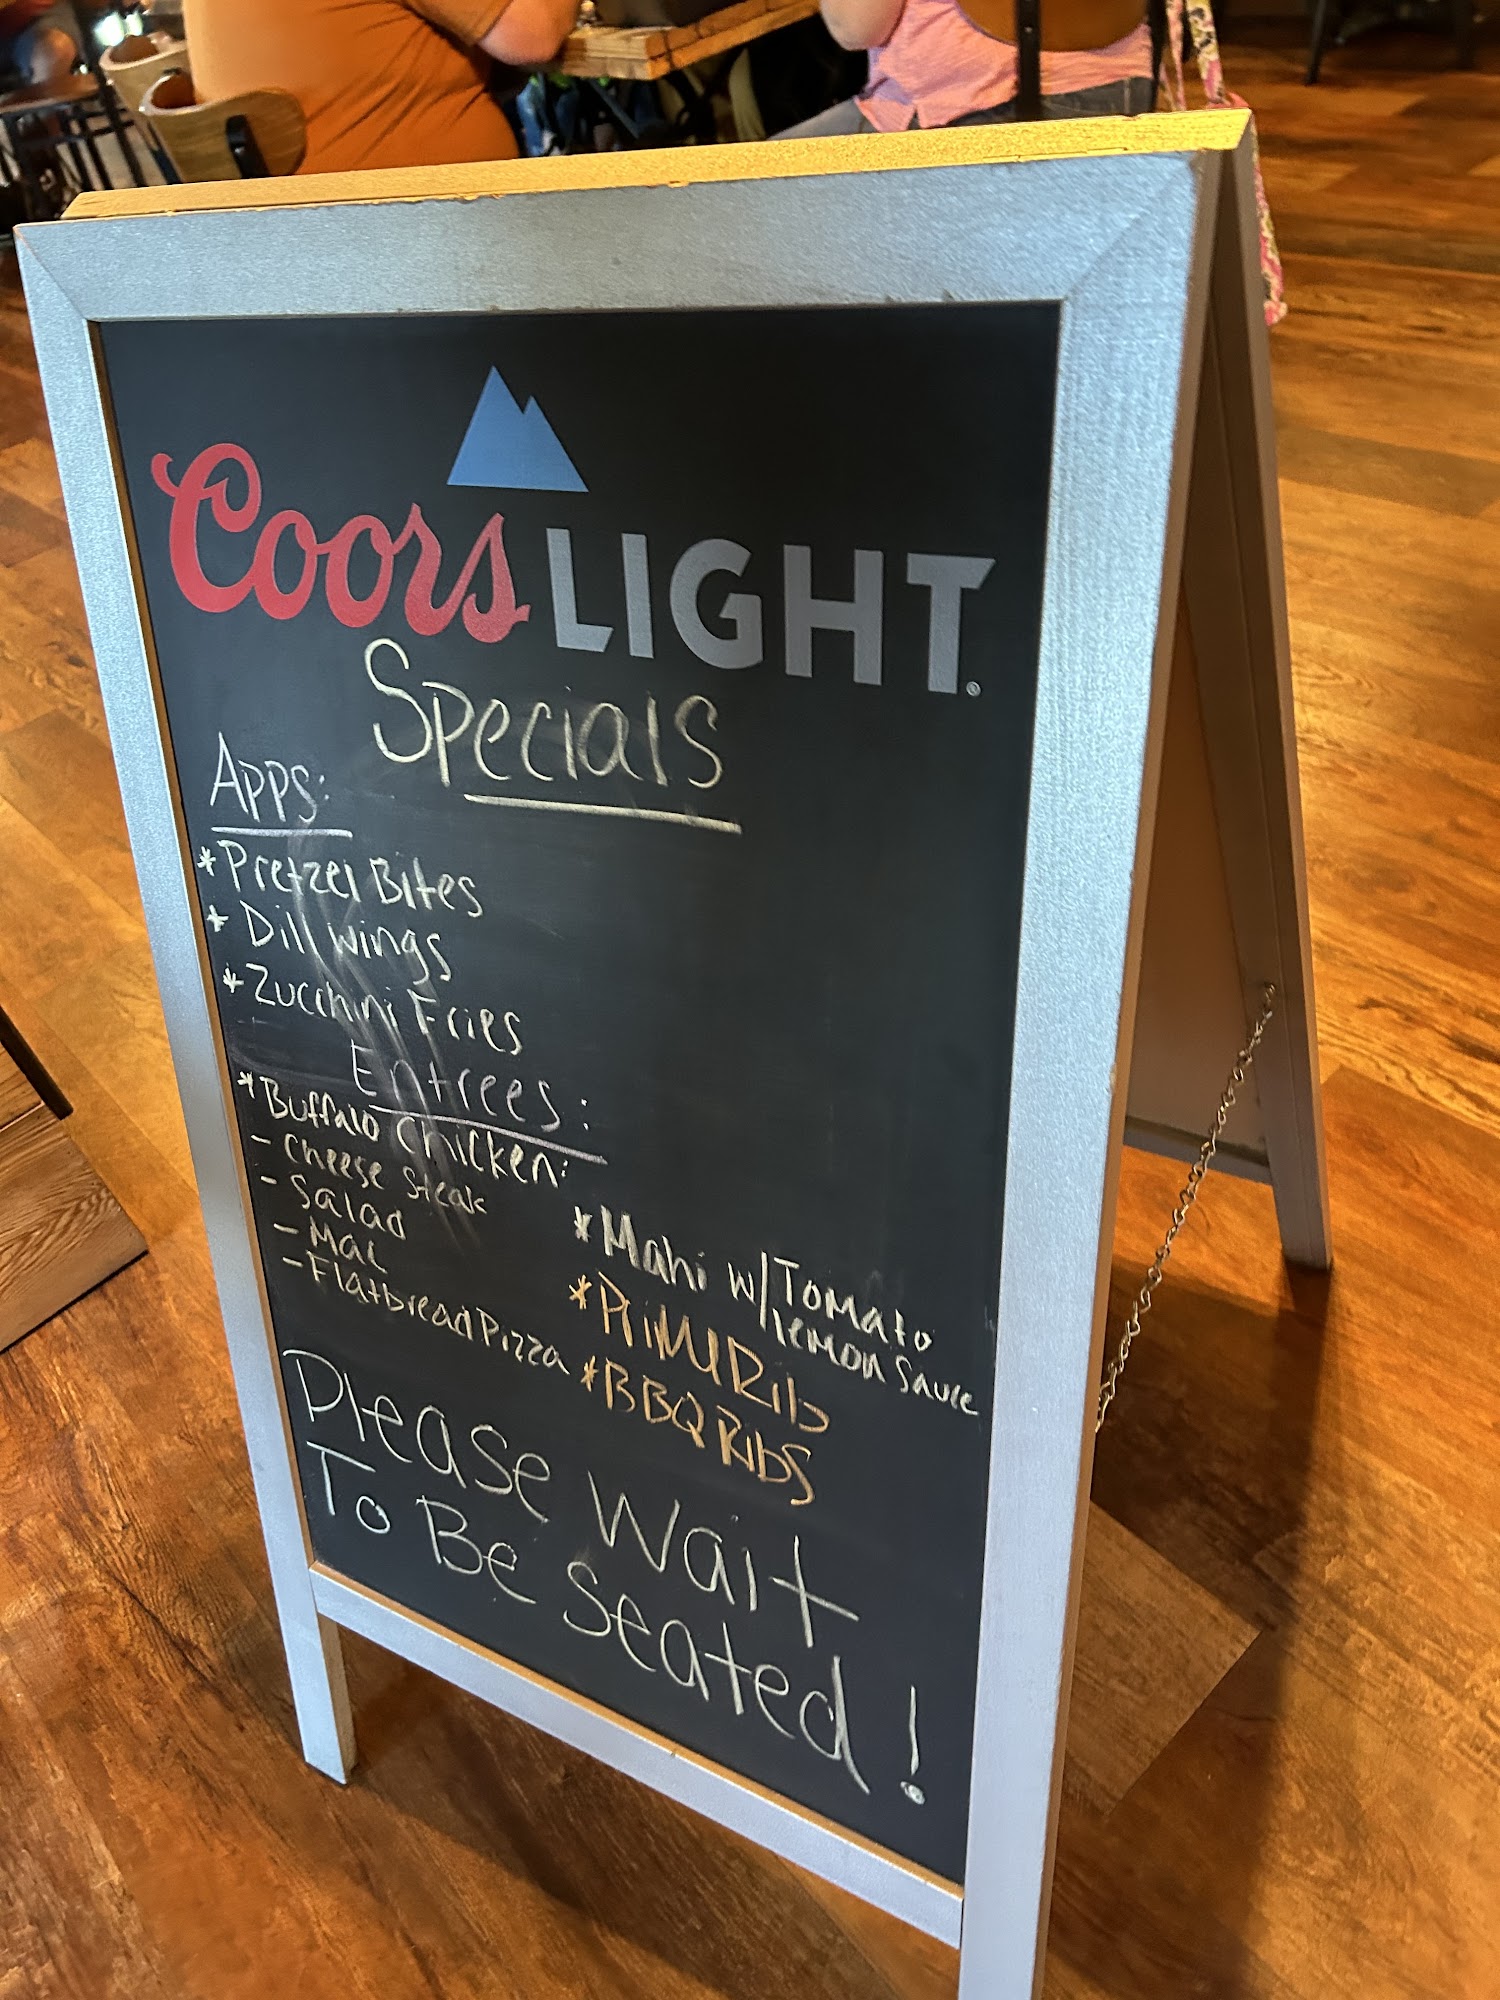 Coors LIGHT®
Specials
Apps:
*Pretzel Bites
*Dill wings
*Zucchini Fries
Entrees:
*Buffalo chicken:
- Cheese Steak
- Salad
- Mac
- Flatbread Pizza
*Mahi w/Tomato
lemon Sauce
*Prime Rib
*BBQ Ribs
Please Wait
To Be Seated!